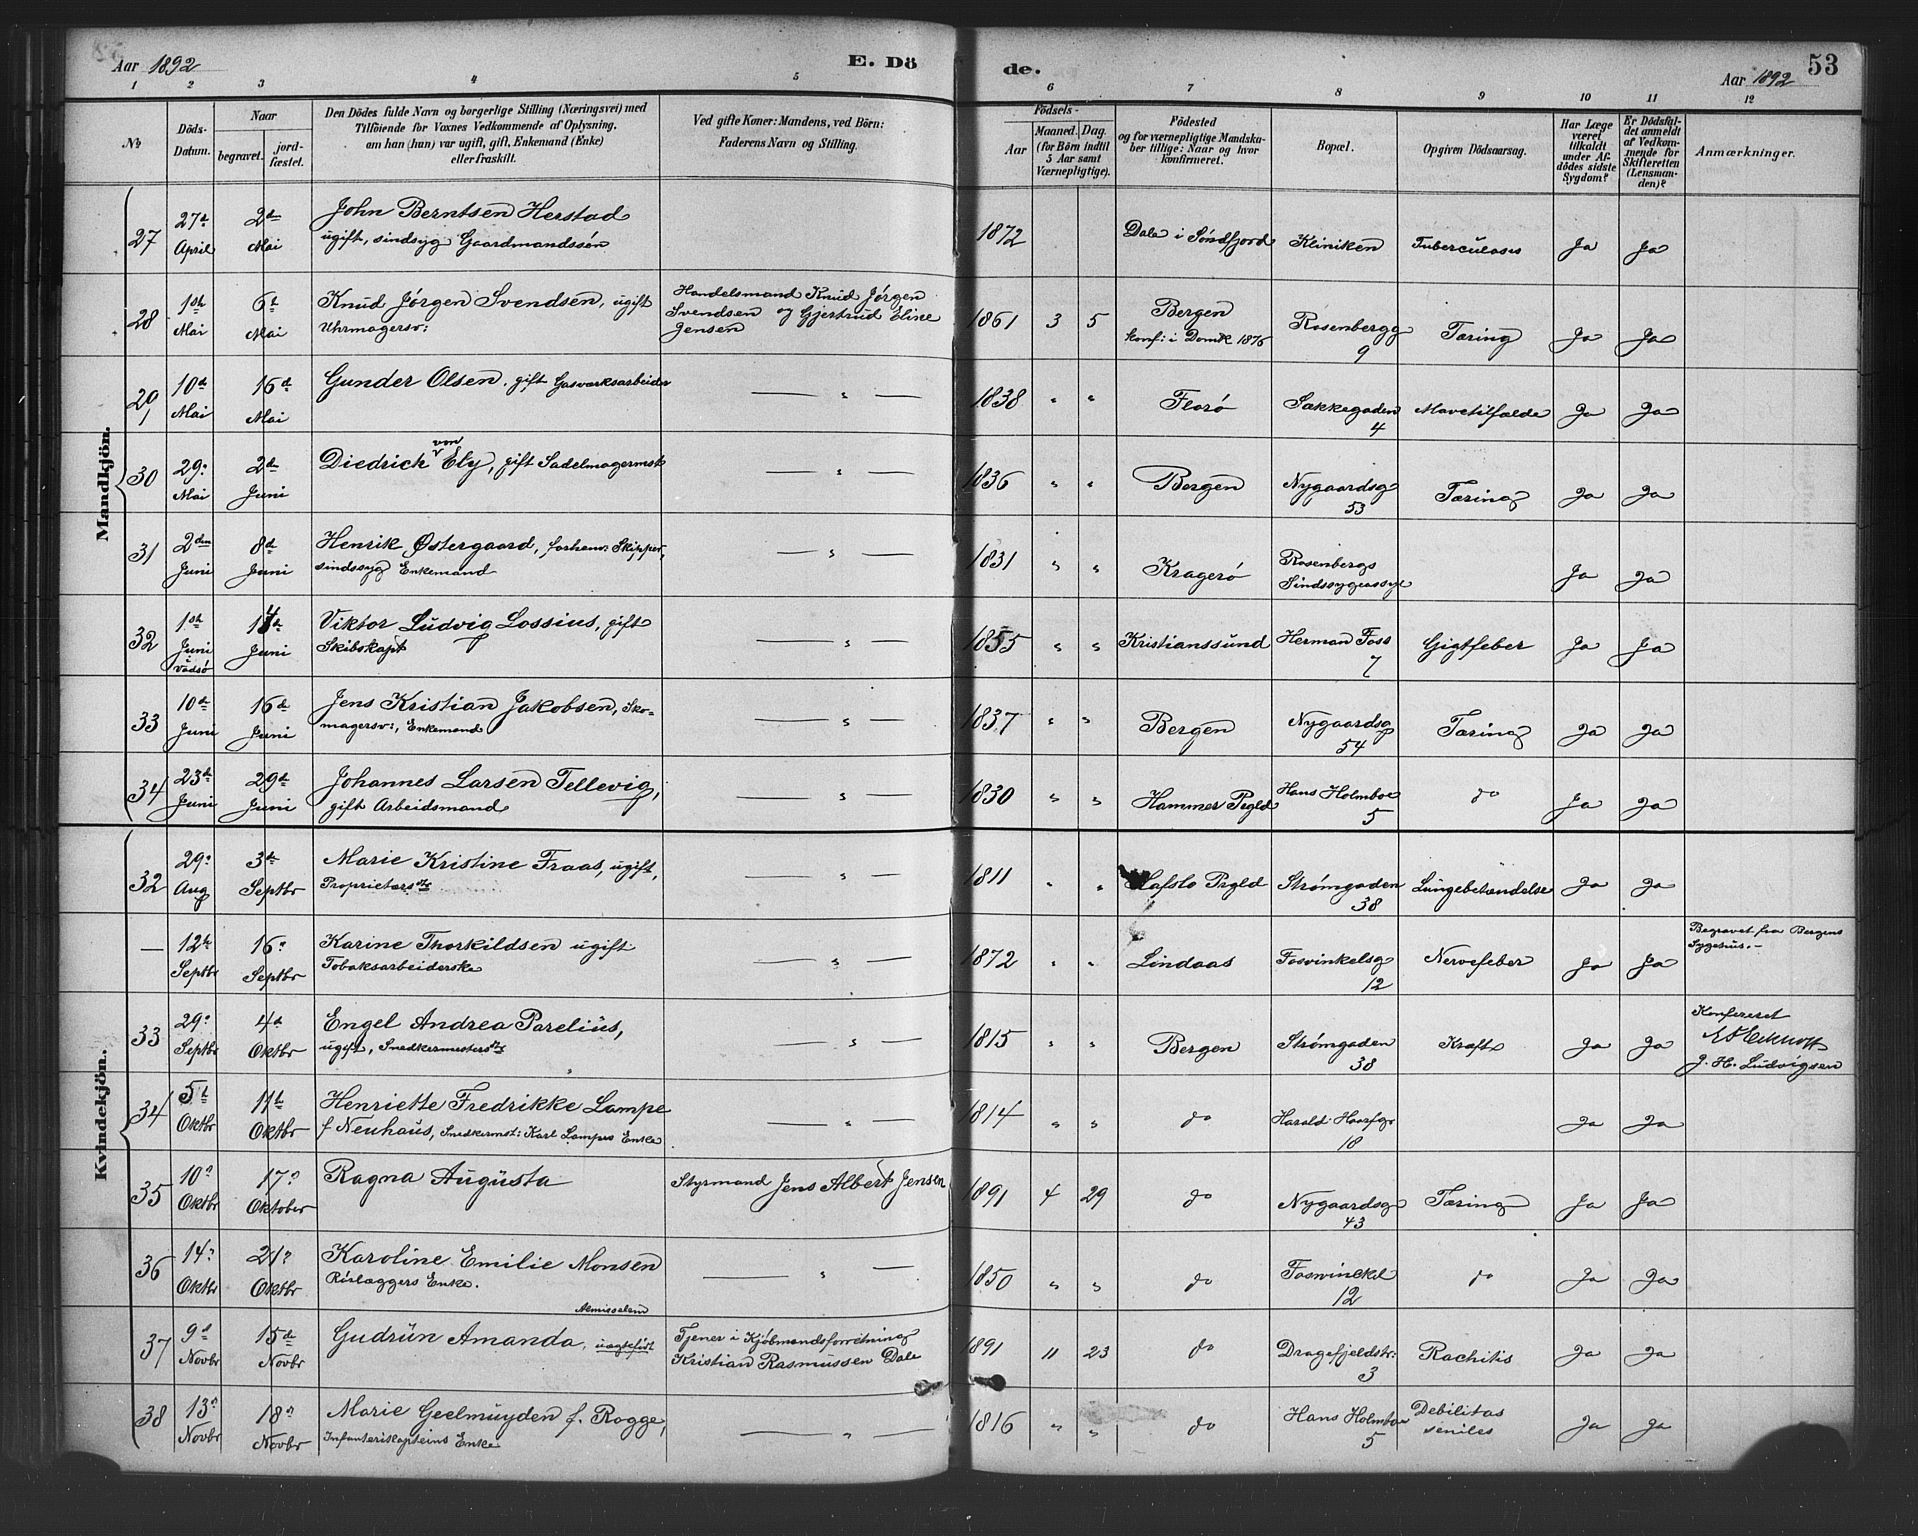 Aar 1892
E. Dö
de.
Aar 1892
53
1 2 3 4 5 6 7 8 9 10 11 12
No
Döds-
Datum.
Naar
begravet.
jord-
fæstet.
Den Dödes fulde Navn og borgerlige Stilling (Næringsvei) med
Tilföiende for Voxnes Vedkommende af Oplysning,
om han (hun) var ugift, gift, Enkemand (Enke)
eller fraskilt.
Ved gifte Koner: Mandens, ved Börn:
Faderens Navn og Stilling.
Födsels-
Aar
Maaned.
Dag.
(for Börn indtil
5 Aar samt
Værnepligtige).
Födested
og for værnepligtige Mandska-
ber tillige: Naar og hvor
konfirmeret.
Bopæl.
Opgiven Dödsaarsag.
Har Læge
været
tilkaldt
under Af-
dödes sidste
Sygdom?
Er Dödsfal-
det anmeldt
af Vedkom-
mende for
Skifteretten
(Lensman-
den)?
Anmærkninger.
Mandkjön.
27
27d
April
2den
Mai
John Berntsen Herstad
ugift, sindsyg Gaardmandssøn
1872
Dale i Søndfjord
Kliniken
Tuberculosis
Ja
Ja
28
1st
Mai
6t
Mai
Knud Jørgen Svendsen, ugift
Uhrmagersv:
Handelsmand Knud Jørgen
Svendsen og Gjertrud Eline
Jensen
1861 3 5
Bergen
konf: i Domk 1876
Rosenbergg
9
Tæring
Ja
Ja
29
10d
Mai
16d
Mai
Gunder Olsen, gift Gasværksarbeider
— " —
1838 " "
Florø
Sækkegaden
4
Mavetilfælde
Ja
Ja
30
29:
Mai
2den
Juni
von
Diedrich Ely, gift Sadelmagermst
— " —
1836 " "
Bergen
Nygaardsg
53
Tæring
Ja
Ja
31
2den
Juni
8d
Juni
Henrik Østergaard, forhenv: Skipper,
sindssyg Enkemand
— " —
1831 " "
Kragerø
Rosenbergs
Sindssygeassyl
Ja
Ja
32
1st
Juni
Vadsø
14de
Juni
Viktor Ludvig Lossius, gift
Skibskapt
— " —
1855 " "
Kristianssund
Herman Foss
7
Gigtfeber
Ja
Ja
33
10de
Juni
16de
Juni
Jens Kristian Jakobsen, Sko-
magersv:, Enkemand
— " —
1837 " "
Bergen
Nygaardsg
54
Tæring
Ja
Ja
34
23d
Juni
29d
Juni
Johannes Larsen Tellevig,
gift Arbeidsmand
— " —
1830 " "
Hammer Prgld
Hans Holmboe
5
do
Ja
Ja
Kvindekjön.
32
29:
Aug
3de
Septbr
Marie Kristine Fraas, ugift,
Proprietærsdtr
— " —
1811 " "
Hafslo Prgld
Strømgaden
38
Lungebetændelse
Ja
Ja
—
12t
Septbr
16:
Septbr
Karine Thorkildsen ugift
Tobaksarbeiderske
— " —
1872 " "
Lindaas
Fosvinkelsg
12
Nervefeber
Ja
Ja
Begravet fra Bergens
Sygehus.—
33
29:
Septbr
4d
Oktbr
Engel Andrea Parelius,
ugift, Snedkermestersdtr
— " —
1815 " "
Bergen
Strømgaden
38
Kræft
Ja
Ja
Konfereret
J. H. Ludvigsen
34
5t
Oktbr
11te
Oktbr
Henriette Fredrikke Lampe
f Neuhaus, Snedkermst: Karl Lampes Enke
— " —
1814 " "
do
Harald Haarfgr
18
Ja
Ja
35
10:
Oktbr
17:
Oktober
Ragna Augusta
Styrmand Jens Albert Jensen
1891 4 29
do
Nygaardsg
43
Tæring
Ja
Ja
36
14:
Oktbr
21:
Oktbr
Karoline Emilie Monsen
Reislæggers Enke.
— " —
1850 " "
do
Fosvinckel
12
do
Ja
Ja
37
9d
Novbr
15de
Novbr
Almisselem
Gudrun Amanda, uægtefødt
Tjener i Kjøbmandsforretning
Kristian Rasmussen Dale
1891 11 23
do
Dragefjeldstr:
3
Rachitis
Ja
Ja
38
13:
Novbr
18:
Novbr
Marie Geelmuyden f. Rogge,
Infanterikapteins Enke
— " —
1816 " "
do
Hans Holmboe
5
Debilitas
seniles
Ja
Ja